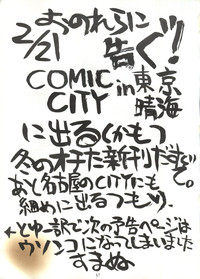 よっのれらに
2/21 告ぐッ!
COMIC
CITY in東京
晴海
に出る(かも)
冬のオチた新刊だすぞ。
あと名古屋のCITYにも
細めに出るつもり。
←とゆー訳で次の予告ページは
ウソンコになってしまいました
すまぬ